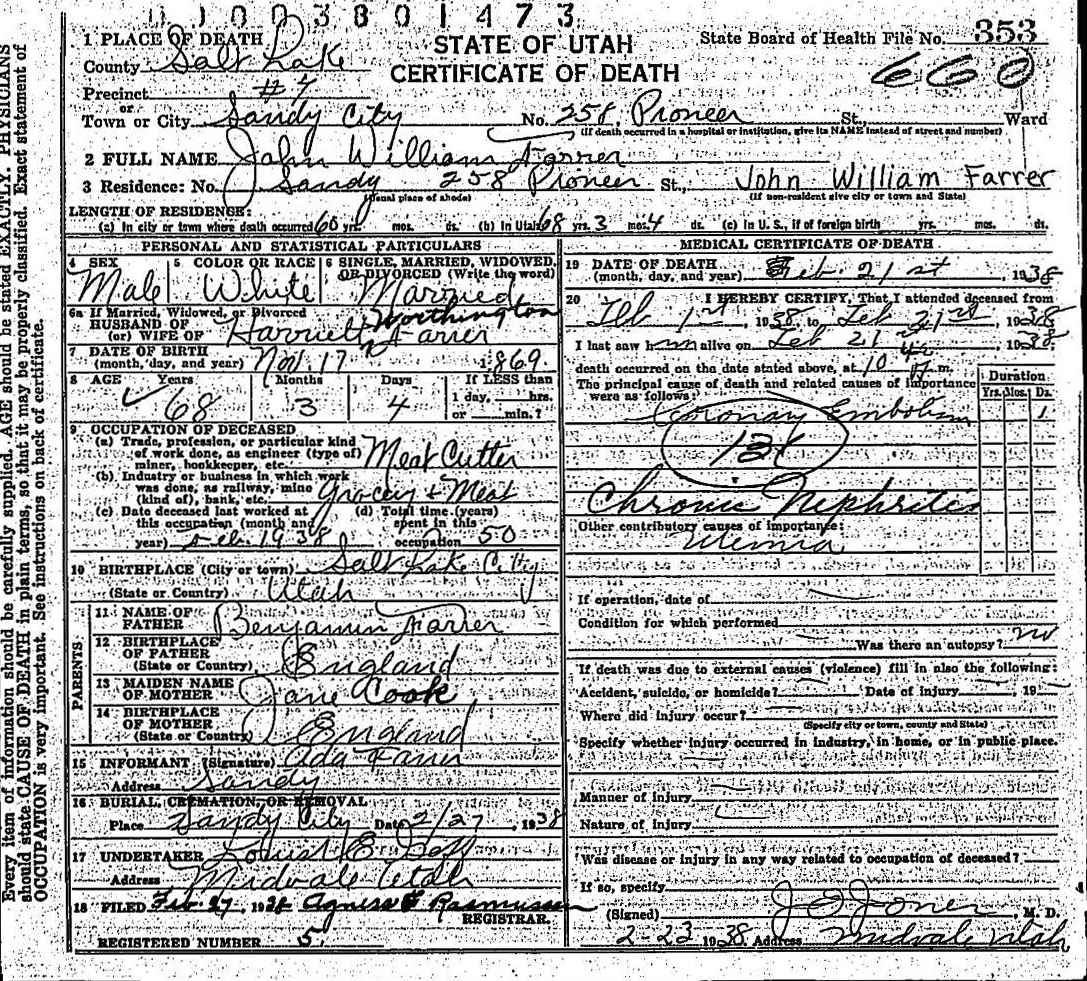 0 1 0 0 3 8 0 1 4 7 3
1 PLACE OF DEATH
County Salt Lake
Precinct #7
or
Town or City Sandy City No. 258, Pioneer St., Ward
(If death occurred in a hospital or institution, give its NAME instead of street and number)
STATE OF UTAH
CERTIFICATE OF DEATH
State Board of Health File No. 353
660
2 FULL NAME John William Farrer
3 Residence: No. Sandy 258 Pioneer St., John William Farrer
(Usual place of abode) (If non-resident give city or town and State)
LENGTH OF RESIDENCE:
(a) In city or town where death occurred 60 yrs. mos. ds. (b) In Utah 68 yrs. 3 mos. 4 ds. (c) In U. S., if of foreign birth yrs. mos. ds.
PERSONAL AND STATISTICAL PARTICULARS
4 SEX Male
5 COLOR OR RACE White
6 SINGLE, MARRIED, WIDOWED, OR DIVORCED (Write the word) Married
6a If Married, Widowed, or Divorced
HUSBAND OF
(or) WIFE OF Harriett Worthington Farrer
7 DATE OF BIRTH
(month, day, and year) Nov. 17 1869
8 AGE Years 68 Months 3 Days 4 If LESS than
1 day, hrs.
or min.?
9 OCCUPATION OF DECEASED
(a) Trade, profession, or particular kind
of work done, as engineer (type of)
miner, bookkeeper, etc. Meat Cutter
(b) Industry or business in which work
was done, as railway, mine
(kind of), bank, etc. Grocery + Meat
(c) Date deceased last worked at
this occupation (month and
year) Feb. 1938
(d) Total time (years)
spent in this
occupation 50
10 BIRTHPLACE (City or town) Salt Lake City
(State or Country) Utah
PARENTS
11 NAME OF
FATHER Benjamin Farrer
12 BIRTHPLACE
OF FATHER
(State or Country) England
13 MAIDEN NAME
OF MOTHER Jane Cook
14 BIRTHPLACE
OF MOTHER
(State or Country) England
15 INFORMANT (Signature) Ada Farrer
Address Sandy
16 BURIAL, CREMATION, OR REMOVAL
Place Sandy City Date 2/27, 1938
17 UNDERTAKER
Address Midvale Utah
18 FILED Feb. 27, 1938 Agness Rasmussen
REGISTRAR.
REGISTERED NUMBER 5
MEDICAL CERTIFICATE OF DEATH
19 DATE OF DEATH
(month, day, and year) Feb. 21st, 1938
20 I HEREBY CERTIFY, That I attended deceased from
Feb 1st, 1938, to Feb 21st, 1938
I last saw him alive on Feb 21, 1938
death occurred on the date stated above, at 10 m.
The principal cause of death and related causes of importance
were as follows:
Duration
Yrs. Mos. Ds.
Coronary Embolism 1
131
Chronic Nephritis
Other contributory causes of importance:
Uremia
If operation, date of
Condition for which performed
Was there an autopsy? no
If death was due to external causes (violence) fill in also the following:
Accident, suicide, or homicide? Date of injury, 19
Where did injury occur?
(Specify city or town, county and State)
Specify whether injury occurred in industry, in home, or in public place.
Manner of injury
Nature of injury
Was disease or injury in any way related to occupation of deceased?
If so, specify
(Signed) J O Jones, M. D.
2-23 1938 Address Midvale Utah
Every item of information should be carefully supplied. AGE should be stated EXACTLY. PHYSICIANS
should state CAUSE OF DEATH in plain terms, so that it may be properly classified. Exact statement of
OCCUPATION is very important. See instructions on back of certificate.